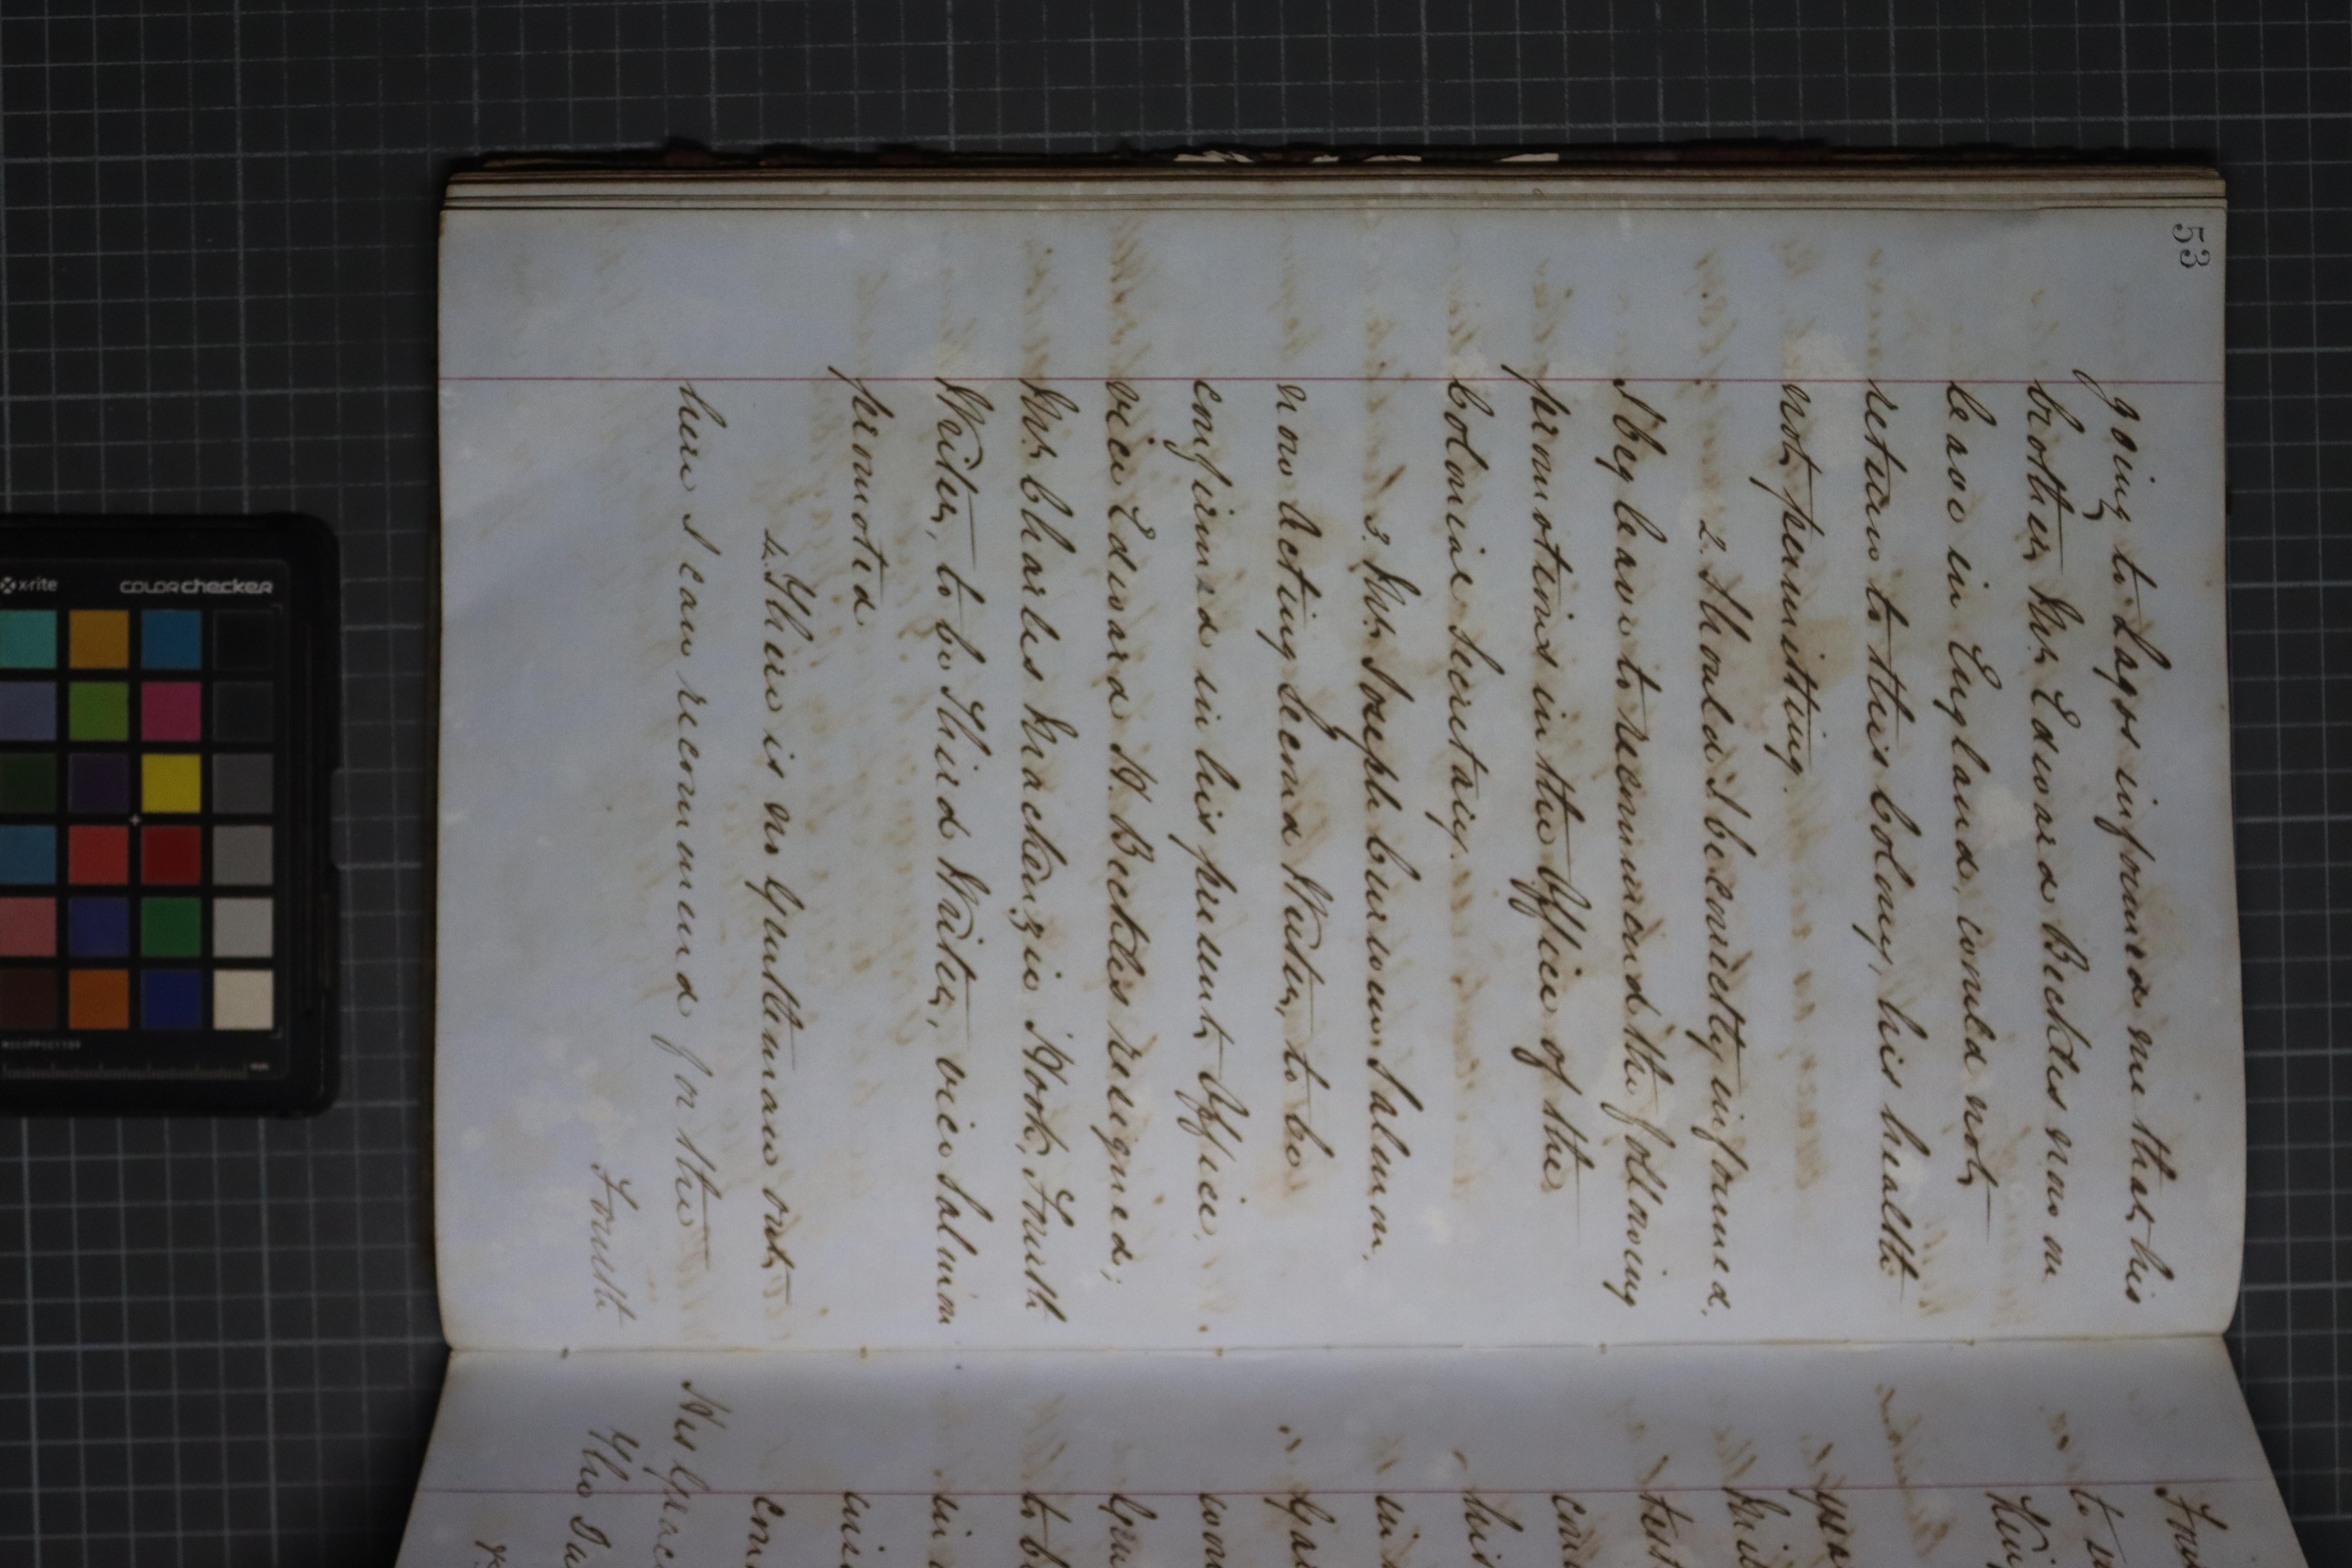 53
going to Lagos informed me that his
brother Mr. Edward Beckles now on
leave in England, would not
return to this Colony, his health
not permitting.
2. Should I be correctly informed,
I beg leave to recommend the following
promotions in the Office of the
Colonial Secretary.
3. Mr. Joseph Salmon,
now Acting Second Writer, to be
confirmed in his present Office,
vice Edward H. Beckles resigned;
Mr. Charles Mackenzie Hook, Fourth
Writer, to be Third Writer, vice Salmon
promoted
4. There is no Gentleman out
here I can recommend for the
Fourth
to
His Grace
The
x-rite
colorchecker